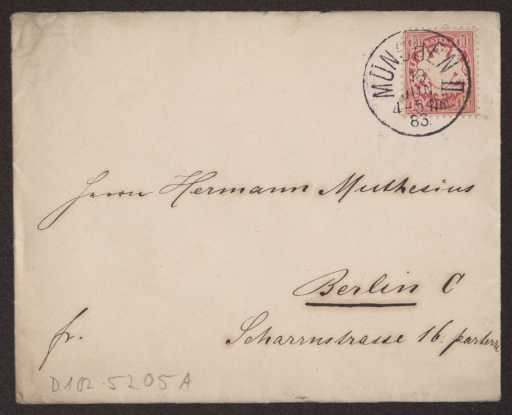 MÜNCHEN II
JUN.
83
Herrn Hermann Muthesius
Berlin C
fr.
Scharrnstrasse 16. parterre
D102-5205A